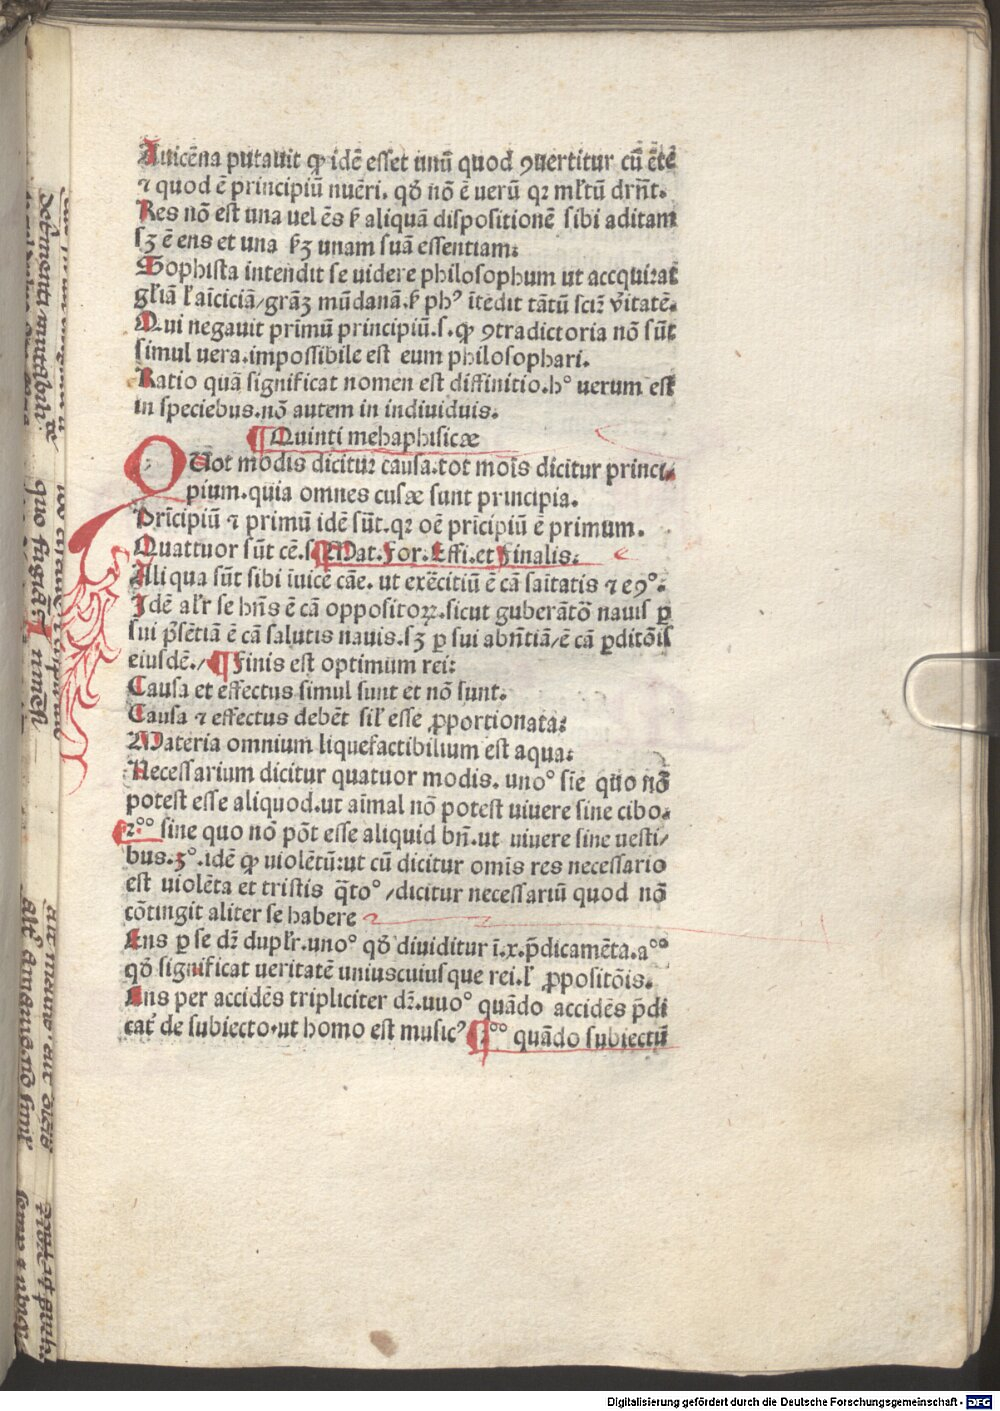 Auicēna putauit ꝙ idē esset unū quod ꝯuertitur cū ēte
⁊ quod ē principiū nūeri. qđ nō ē uerū qꝛ mlt̄ū drn̄t.
Res nō est una uel ēs ꝑ aliquā dispositionē sibi aditam
sꝫ ē ens et una ꝑꝫ unam suā essentiam:
Sophista intendit se uidere philosophum ut accquirat
gl̄iā ł aīciciā/grāꝫ mūdanā.ꝑ phꝰ ītēdit tātū scīꝛ v̄itatē.
Qui negauit primū principiū.s.ꝙ ꝯtradictoria nō sūt
simul uera.impossibile est eum philosophari.
Ratio quā significat nomen est diffinitio.h° uerum est
in speciebus.nō autem in indiuiduis.
¶ Quinti mehaphisicæ
QUot modis dicitur causa.tot moīs dicitur princi-
pium.quia omnes cusæ sunt principia.
Prīcipiū ⁊ primū idē sūt.qꝛ oē prīcipiū ē primum.
Quattuor sūt cē.s.¶Mat.For.Effi.et Finalis:
Ali qua sūt sibi īuicē cāe. ut exercitiū ē cā saītatis ⁊ eꝯ°.
Idē al̄r se hn̄s ē cā oppositoꝝ.sicut guberātō nauis ꝑ
sui p̄sētiā ē cā salutis nauis.sꝫ ꝑ sui abn̄tiā/ē cā ꝑditōis
eiusdē./¶Finis est optimum rei:
Causa et effectus simul sunt et nō sunt.
Causa ⁊ effectus debēt sił esse ꝓportionata:
Materia omnium liquefactibilium est aqua:
Necessarium dicitur quatuor modis. uno° sīe quo nō
potest esse aliquod.ut aīmal nō potest uiuere sine cibo.
2°° sine quo nō pōt esse aliquid bn̄.ut uiuere sine uesti/
bus.3°.idē ꝙ uiolētū:ut cū dicitur omīs res necessario
est uiolēta et tristis q̄to° /dicitur necessariū quod nō
cōtingit aliter se habere
Ens ꝑ se dꝛ dupl̄r.uno° qđ diuiditur ī.x.p̄dicamēta.a°°
qđ significat ueritatē uniuscuiusque rei.ł ꝓpositōis.
Ens per accidēs tripliciter dꝛ.uuo° quādo accidēs p̄di
cat̄ de subiecto.ut homo est musicꝰ ¶2°° quādo subiectū
Digitalisierung gefördert durch die Deutsche Forschungsgemeinschaft - DFG